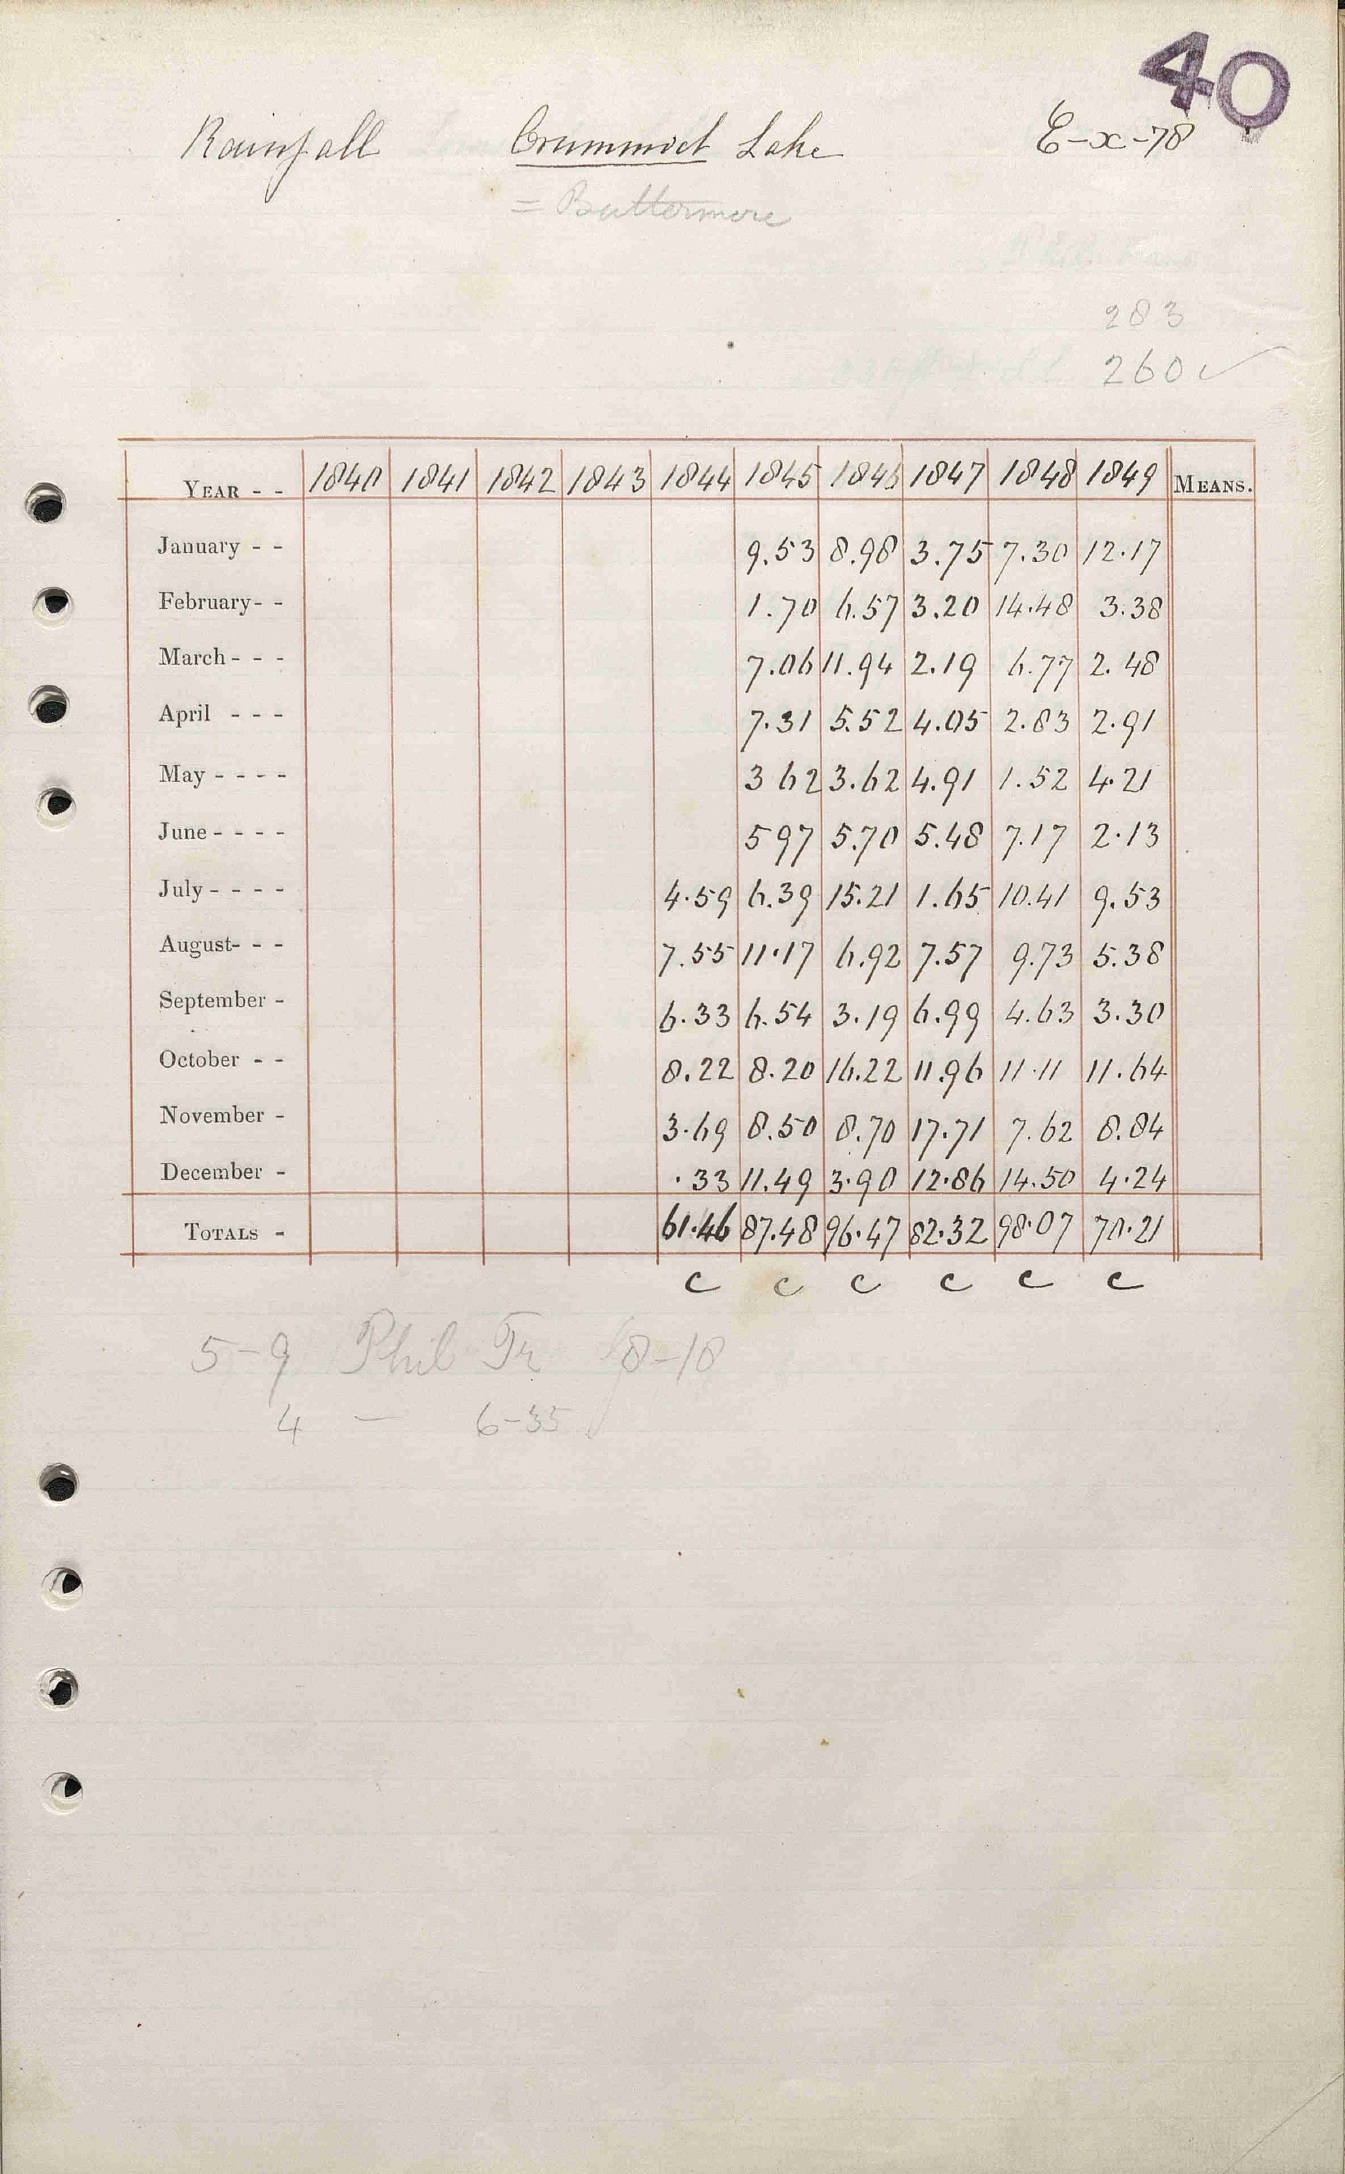 40
Rainfall Crummock Lake E-x-78
= Buttermere
283
260 ✓
YEAR - - 1840 1841 1842 1843 1844 1845 1846 1847 1848 1849 MEANS.
January - - 9.53 8.98 3.75 7.30 12.17
February - - 1.70 6.57 3.20 14.48 3.38
March - - - 7.06 11.94 2.19 6.77 2.48
April - - - 7.31 5.52 4.05 2.83 2.91
May - - - - 3 62 3.62 4.91 1.52 4.21
June - - - - 5 97 5.70 5.48 7.17 2.13
July - - - - 4.59 6.39 15.21 1.65 10.41 9.53
August - - - 7.55 11.17 6.92 7.57 9.73 5.38
September - 6.33 6.54 3.19 6.99 4.63 3.30
October - - 8.22 8.20 16.22 11.96 11.11 11.64
November - 3.69 8.50 8.70 17.71 7.62 8.84
December - .33 11.49 3.90 12.86 14.50 4.24
TOTALS - 61.46 87.48 96.47 82.32 98.07 70.21
c c c c c c
5-9 Phil Tr 8-18
4 — 6-35